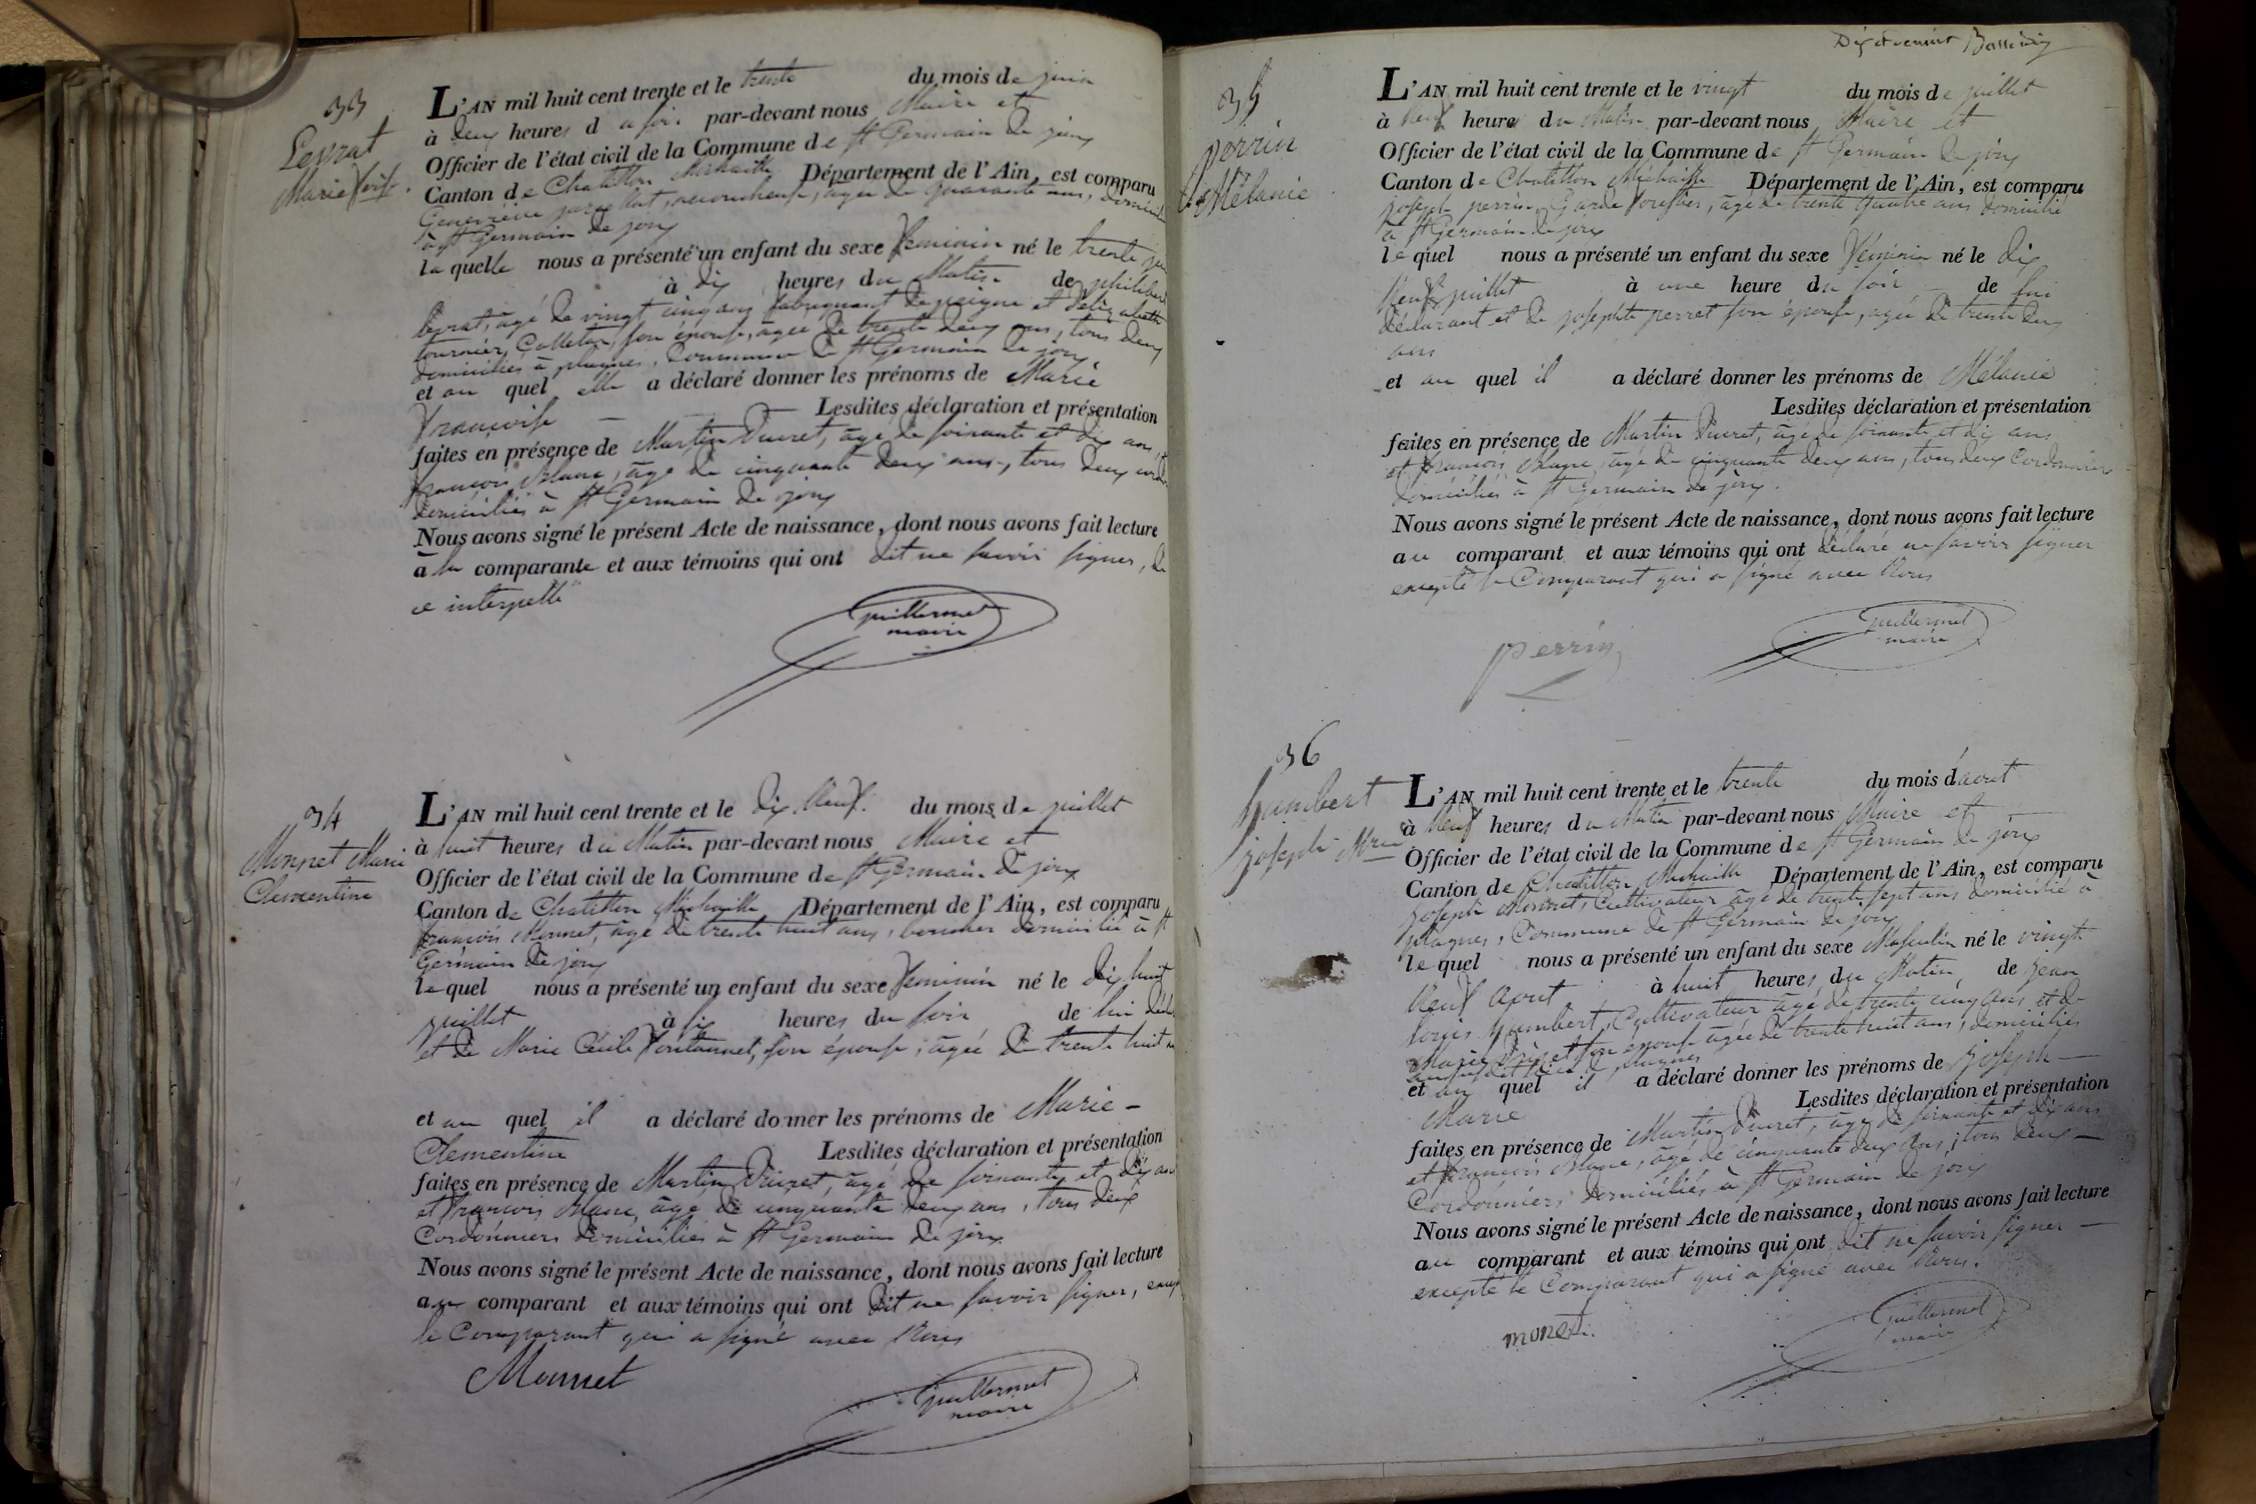 33
Marie
L'AN mil huit cent trente et le trente du mois de juin
à deux heures d par-devant nous Maire et
Officier de l'état civil de la Commune de St Germain de joux
Canton de Chatillon Michaille Département de l'Ain, est comparu
accoucheuse, agée de quarante ans,
à St Germain de joux
laquelle nous a présenté un enfant du sexe feminin né le trente
à dix heures du Matin de philibert
âgé de vingt cinq ans fabriquant de peigne et
tournier son épouse, agée de trente deux ans, tous deux
domiciliés à plagnes, Commune de St Germain de joux
et au quel elle a déclaré donner les prénoms de Marie
françoise Lesdites déclaration et présentation
faites en présence de Martin Ducret, âgé de soixante et dix ans,
françois Blanc, âgé de cinquante deux ans, tous deux
domiciliés à St Germain de joux
Nous avons signé le présent Acte de naissance, dont nous avons fait lecture
à la comparante et aux témoins qui ont dit ne savoir signer, de
ce interpellé
Guillermet
maire
34
Monnet Marie
Clementine
L'AN mil huit cent trente et le dix Neuf du mois de juillet
à huit heures du Matin par-devant nous Maire et
Officier de l'état civil de la Commune de St Germain de joux
Canton de Chatillon Michaille Département de l'Ain, est comparu
françois Monnet, âgé de trente huit ans, domicilié à St
Germain de joux
lequel nous a présenté un enfant du sexe feminin né le dix huit
juillet à six heures du soir de lui
et de Marie Cécile son épouse, agée de trente huit
et au quel il a déclaré donner les prénoms de Marie -
Clementine Lesdites déclaration et présentation
faites en présence de Martin Ducret, âgé de soixante et dix ans
et françois Blanc, âgé de cinquante deux ans, tous deux
Cordonniers domiciliés à St Germain de joux
Nous avons signé le présent Acte de naissance, dont nous avons fait lecture
au comparant et aux témoins qui ont dit ne savoir signer,
le Comparant qui a signé avec Nous
Monnet
Guillermet
maire
35
perrin
Mélanie
L'AN mil huit cent trente et le vingt du mois de juillet
à Neuf heures du Matin par-devant nous Maire et
Officier de l'état civil de la Commune de St Germain de joux
Canton de Chatillon Michaille Département de l'Ain, est comparu
joseph perrin, Garde forestier, âgé de trente quatre ans domicilié
à St Germain de joux
lequel nous a présenté un enfant du sexe féminin né le dix
Neuf juillet à une heure du soir de lui
déclarant et de josephte perret son épouse, agée de trente deux
ans
et au quel il a déclaré donner les prénoms de Mélanie
Lesdites déclaration et présentation
faites en présence de Martin Ducret, âgé de soixante et dix ans
et françois Blanc, âgé de cinquante deux ans, tous deux Cordonniers
domiciliés à St Germain de joux.
Nous avons signé le présent Acte de naissance, dont nous avons fait lecture
au comparant et aux témoins qui ont déclaré ne savoir signer
excepté le Comparant qui a signé avec Nous
perrin
Guillermet
maire
36
humbert
joseph Mrie
L'AN mil huit cent trente et le trente du mois d'aout
à Neuf heures du Matin par-devant nous Maire et
Officier de l'état civil de la Commune de St Germain de joux
Canton de Chatillon Michaille Département de l'Ain, est comparu
joseph Monnet, Cultivateur âgé de trente sept ans domicilié à
plagnes, Commune de St Germain de joux
lequel nous a présenté un enfant du sexe Masculin né le vingt
Neuf aout à huit heures du Matin de jean
louis humbert, Cultivateur âgé de trente cinq ans et de
Marie son épouse agée de trente huit ans, domiciliés
et au quel il a déclaré donner les prénoms de joseph -
Marie Lesdites déclaration et présentation
faites en présence de Martin Ducret, âgé de soixante et dix ans
et françois Blanc, âgé de cinquante deux ans, tous deux -
Cordonniers domiciliés à St Germain de joux
Nous avons signé le présent Acte de naissance, dont nous avons fait lecture
au comparant et aux témoins qui ont dit ne savoir signer -
excepté le Comparant qui a signé avec Nous.
monet.
Guillermet
maire